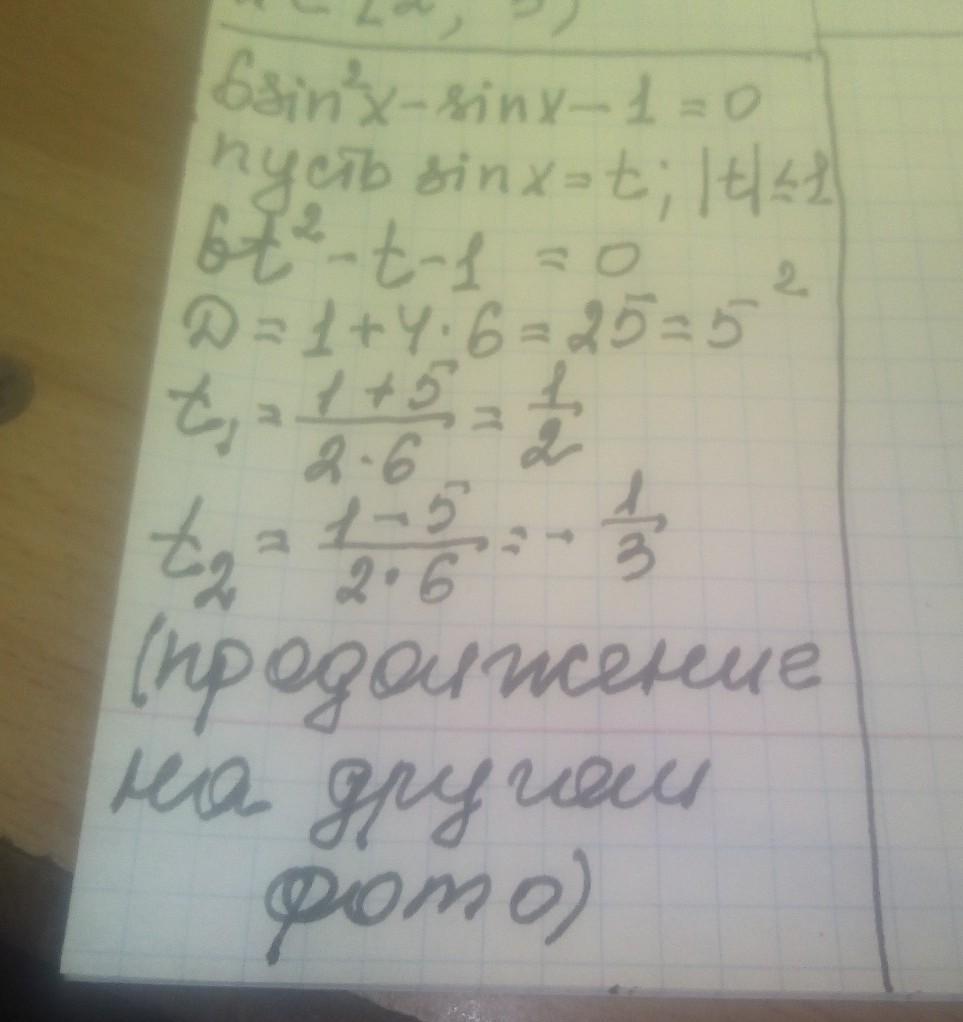 6sin²x-sinx-1=0
пусть sinx=t; |t|≤1
6t²-t-1=0
D=1+4·6=25=5²
t₁=(1+5)/(2·6)=1/2
t₂=(1-5)/(2·6)=-1/3
(продолжение
на другом
фото)